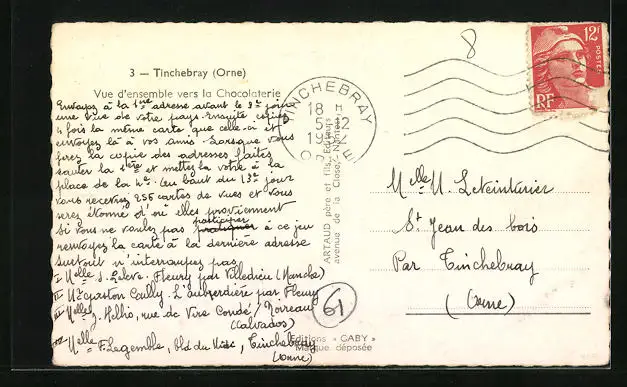 3 — Tinchebray (Orne)
Vue d'ensemble vers la Chocolaterie
Envoyez à la 1ère adresse avant le 3e jour
une vue de votre pays. Ensuite copiez
4 fois la même carte que celle-ci et
envoyez là à vos amis. Lorsque vous
ferez la copie des adresses faites
sauter la 1ère et mettez la vôtre à la
place de la 4e. Au bout du 13e jour
vous recevrez 256 cartes de vues et vous
serez étonné d'où elles proviennent
si vous ne voulez pas participer à ce jeu
renvoyez la carte à la dernière adresse
surtout n'interrompez pas
I Melle S. Fleury par Villedieu (Manche)
II Mr Gaston Cailly. L'auberdière par Fleury
III Melle J. Hellio, rue de Vire Condé / Noireau
(Calvados)
IIII Melle F. Legemble, Bld du Tinchebray
(Orne)
61
Editions « GABY »
Marque déposée
ARTAUD père et fils, Editeurs
avenue de la Close, Nantes
TINCHEBRAY
18 H
5-12
1952
ORNE
8
12F
POSTES
RF
Melle U. Leteinturier
St Jean des bois
Par Tinchebray
(Orne)